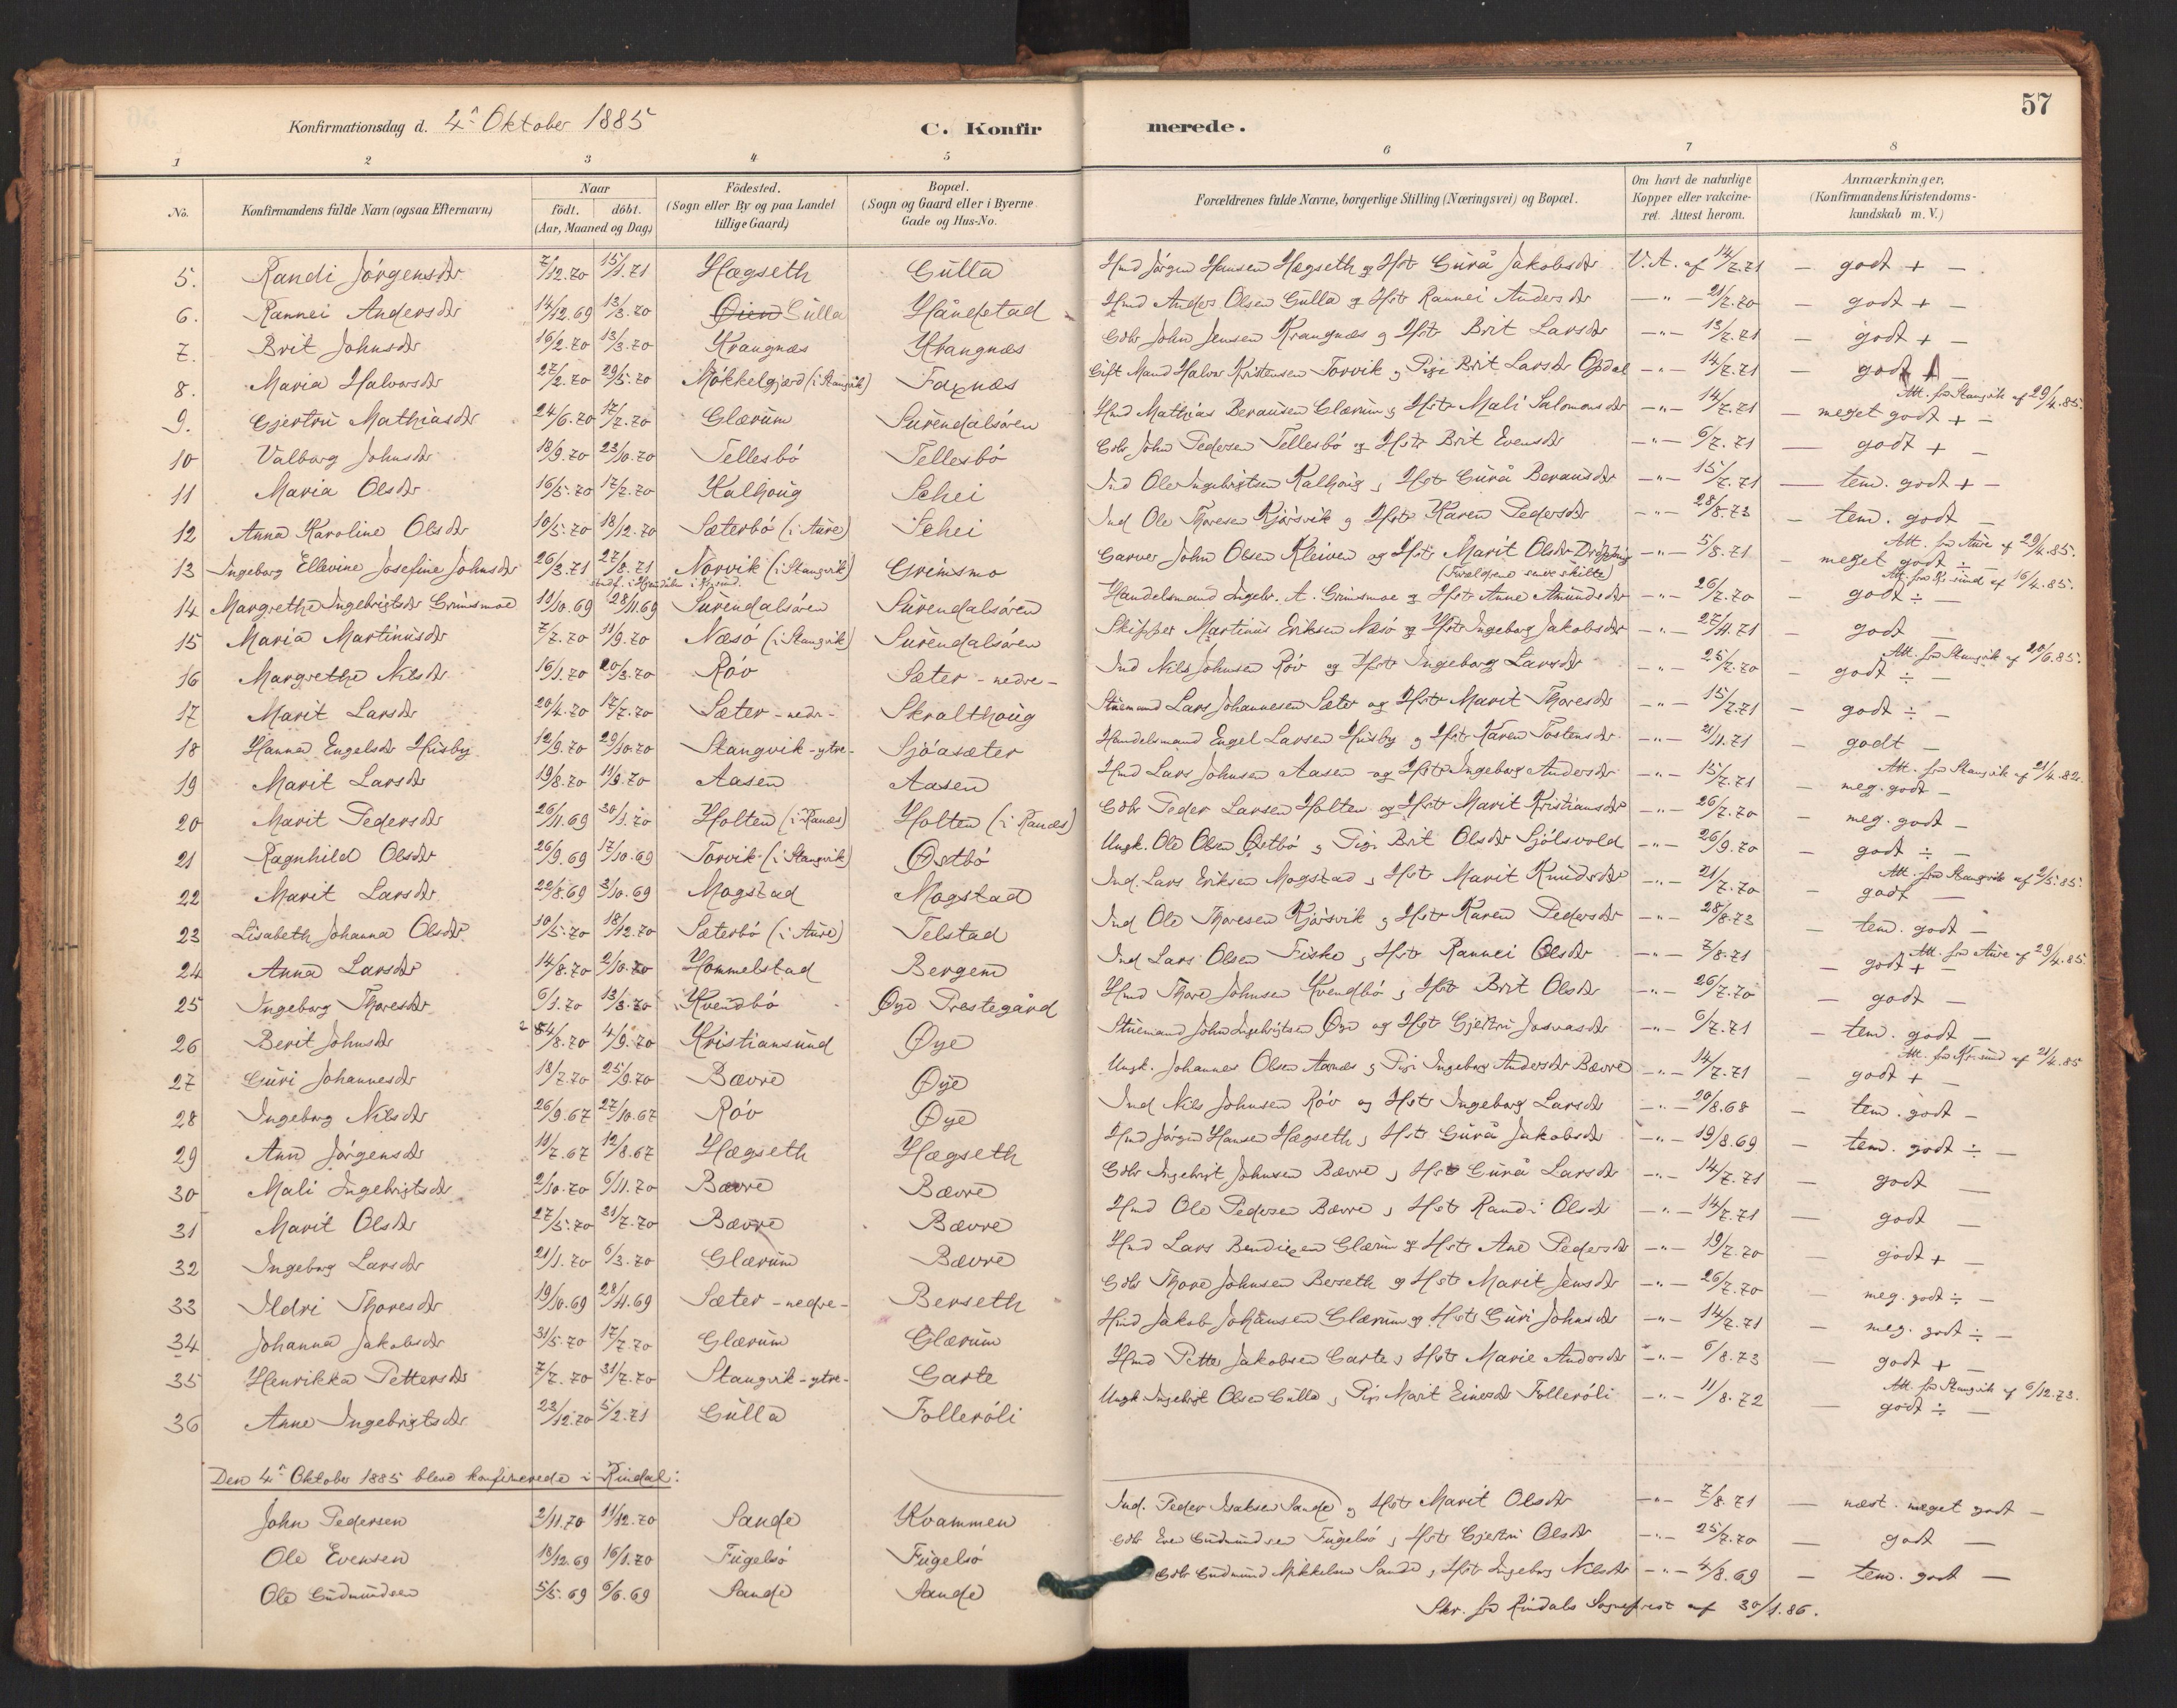 57
Konfirmationsdag d. 4de Oktober 1885 C. Konfirmerede.
1 2 3 4 5 6 7 8
No. Konfirmandens fulde Navn (ogsaa Efternavn) Naar födt. döbt. (Aar, Maaned og Dag) Födested. (Sogn eller By og paa Landet tillige Gaard) Bopæl. (Sogn og Gaard eller i Byerne Gade og Hus-No. Forældrenes fulde Navne, borgerlige Stilling (Næringsvei) og Bopæl. Om havt de naturlige Kopper eller vakcineret. Attest herom. Anmærkninger, (Konfirmandens Kristendomskundskab m. V.)
5. Randi Jörgensdr 7/12.70 15/1.71 Hægseth Gulla Hmd Jörgen Hansen Hægseth og Hstr Gurå Jakobsdr V.A. af 14/7.71 — godt + —
6. Rannei Andersdr 14/12.69 13/3.70 Øien Gulla Håndstad Hmd Anders Olsen Gulla og Hstr Rannei Andersdr —"— 21/7.70 — godt + —
7. Brit Johnsdr 16/2.70 13/3.70 Krangnæs Krangnæs Gbr John Jensen Krangnæs og Hstr Brit Larsdr —"— 13/7.71 — godt + —
8. Maria Halvorsdr 27/2.70 29/5.70 Mökkelgjerd (i Stangvik) Faxnæs Gift Mand Halvor Kristensen Torvik og Pige Brit Larsdr Opdal —"— 14/7.71 — godt — Att. fra Stangvik af 29/4.85.
9. Gjertru Mathiasdr 24/6.70 17/7.70 Glærum Surendalsören Hmd Mathias Berausen Glærum og Hstr Mali Salomonsdr —"— 14/7.71 — meget godt + —
10 Valborg Johnsdr 18/9.70 23/10.70 Tellesbö Tellesbö Gbr John Pedersen Tellesbö og Hstr Brit Evensdr —"— 6/7.71 — godt + —
11 Maria Olsdr 16/5.70 17/7.70 Kalhoug Schei Ind Ole Ingebrigtsen Kalhoug og Hstr Gurå Berausdr —"— 15/7.71 — tem. godt + —
12 Anna Karoline Olsdr 10/5.70 18/12.70 Sæterbö (i Aure) Schei Ind Ole Thoresen Kjörsvik og Hstr Karen Pedersdr —"— 28/8.73 — tem. godt — Att. fra Aure af 29/4.85.
13 Ingeborg Ellevine Josefine Johnsdr 26/3.71 27/8.71 Norvik (i Stangvik) Grimsmo Garver John Olsen Kleiven og Hstr Marit Olsdr (Forældrene ere skilte) —"— 5/8.71 meget godt ÷ — Att. fra Kr.sund af 16/4.85.
14 Margrethe Ingebrigtsdr Grimsmoe 19/10.69 28/11.69 Surendalsören Surendalsören Handelsmand Ingebr. A. Grimsmoe og Hstr Anne Amundsdr —"— 26/7.70 — godt ÷ —
15 Maria Martinusdr 7/7.70 11/9.70 Næsö (i Stangvik) Surendalsören Skipper Martinus Eriksen Næsö og Hstr Ingeborg Jakobsdr —"— 27/4.71 — godt — Att. fra Stangvik af 20/6.85.
16 Margrethe Nilsdr 16/1.70 20/3.70 Röv Sæter - nedre - Ind Nils Johnsen Röv og Hstr Ingeborg Larsdr —"— 25/7.70 — godt ÷ —
17 Marit Larsdr 20/4.70 17/7.70 Sæter - nedr - Skralthoug Stuemand Lars Johannesen Sæter og Hstr Marit Thoresdr —"— 15/7.71 — godt ÷ —
18 Hanna Engelsdr Husby 12/9.70 29/10.70 Stangvik - ytre - Sjöasæter Handelsmand Engel Larsen Husby og Hstr Karen Tostensdr —"— 21/11.71 — godt — Att. fra Stangvik af 21/4.82.
19 Marit Larsdr 19/8.70 11/9.70 Aasen Aasen Hmd Lars Johnsen Aasen og Hstr Ingeborg Andersdr —"— 15/7.71 — meg. godt —
20 Marit Pedersdr 26/11.69 30/1.70 Holten (i Ranæs) Holten (i Ranæs) Gbr Peder Larsen Holten og Hstr Marit Kristiansdr —"— 26/7.70 — meg. godt —
21 Ragnhild Olsdr 26/9.69 17/10.69 Torvik (i Stangvik) Østbö Ungk. Ole Olsen Østbö og Pige Brit Olsdr Sjölsvold —"— 26/9.70 — godt ÷ — Att. fra Stangvik af 2/5.85.
22 Marit Larsdr 22/8.69 3/10.69 Mogstad Mogstad Ind. Lars Eriksen Mogstad og Hstr Marit Knudsdr —"— 21/7.70 — godt —
23 Lisabeth Johanna Olsdr 10/5.70 18/12.70 Sæterbö (i Aure) Telstad Ind Ole Thoresen Kjörsvik og Hstr Karen Pedersdr —"— 28/8.73 — tem. godt — Att. fra Aure af 29/4.85.
24 Anna Larsdr 14/8.70 2/10.70 Hommelstad Bergem Ind Lars Olsen Fiske og Hstr Rannei Olsdr —"— 7/8.71 — godt + —
25 Ingeborg Thoresdr 6/1.70 13/3.70 Kvendbö Øye Prestegård Hmd Thore Johnsen Kvendbö og Hstr Brit Olsdr —"— 26/7.70 — godt —
26 Berit Johnsdr 24/8.70 4/9.70 Kristiansund Øye Stuemand John Ingebrigtsen Øye og Hstr Gjertru Josvasdr —"— 6/7.71 — tem. godt — Att. fra Kr.sund af 21/4.85
27 Guri Johannesdr 18/7.70 25/9.70 Bævre Øye Ungk. Johannes Olsen Aarnæs og Pige Ingeborg Andersdr Bævre —"— 14/7.71 — godt + —
28 Ingeborg Nilsdr 26/9.67 27/10.67 Röv Øye Ind Nils Johnsen Röv og Hstr Ingeborg Larsdr —"— 20/8.68 — tem. godt —
29 Ann Jörgensdr 11/7.67 12/8.67 Hægseth Hægseth Hmd Jörgen Hansen Hægseth og Hstr Gurå Jakobsdr —"— 19/8.69 — tem. godt ÷ —
30 Mali Ingebrigtsdr 2/10.70 6/11.70 Bævre Bævre Gbr Ingebrigt Johnsen Bævre og Hstr Gurå Larsdr —"— 14/7.71 — godt —
31 Marit Olsdr 27/5.70 31/7.70 Bævre Bævre Hmd Ole Pedersen Bævre og Hstr Randi Olsdr —"— 14/7.71 — godt —
32 Ingeborg Larsdr 21/1.70 6/3.70 Glærum Bævre Hmd Lars Bendixen Glærum og Hstr Ane Pedersdr —"— 19/7.70 — godt + —
33 Ildri Thoresdr 19/10.69 28/11.69 Sæter - nedre - Berseth Gbr Thore Johnsen Berseth og Hstr Marit Jensdr —"— 26/7.70 — meg. godt ÷ —
34 Johanna Jakobsdr 31/5.70 17/7.70 Glærum Glærum Hmd Jakob Johansen Glærum og Hstr Guri Johnsdr —"— 14/7.71 — meg. godt ÷ —
35 Henrikka Pettersdr 7/7.70 31/7.70 Stangvik - ytre - Garte Hmd Petter Jakobsen Garte og Hstr Marie Andersdr —"— 6/8.73 — godt + — Att. fra Stangvik af 6/12.73.
36 Anne Ingebrigtsdr 23/12.70 5/2.71 Gulla Folleröli Ungk Ingebrigt Olsen Gulla og Pige Marit Einersdr Folleröli —"— 11/8.72 — godt ÷ —
Den 4de Oktober 1885 bleve konfirmerede i Rindal:
John Pedersen 2/11.70 11/12.70 Sande Kvammen Ind. Peder Isaksen Sande og Hstr Marit Olsdr —"— 7/8.71 — næst. meget godt —
Ole Evensen 18/12.69 16/1.70 Fugelsö Fugelsö Gbr Even Gudmundsen Fugelsö og Hstr Gjertru Olsdr —"— 25/7.70 — godt —
Ole Gudmundsen 5/5.69 6/6.69 Sande Sande Gbr Gudmund Mikkelsen Sande og Hstr Ingeborg Nilsdr —"— 4/8.69 — tem. godt —
Skr. fra Rindals Sogneprest af 30/1.86.